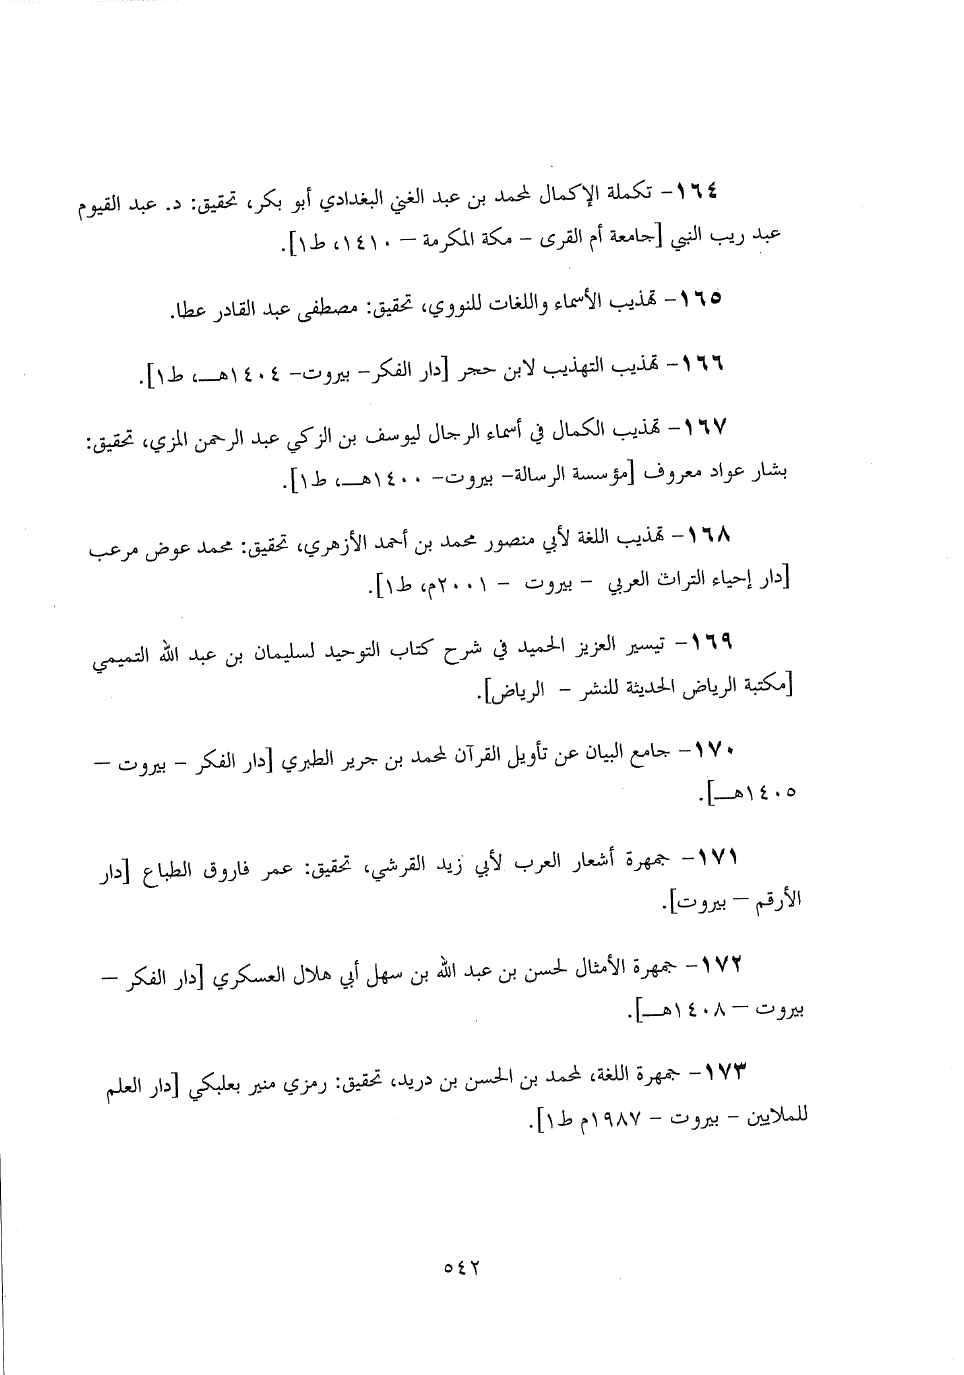 ١٦٤- تكملة الإكمال لمحمد بن عبد الغني البغدادي أبو بكر، تحقيق: د. عبد القيوم
عبد ريب النبي [جامعة أم القرى – مكة المكرمة – ١٤١٠، ط١].
١٦٥- تهذيب الأسماء واللغات للنووي، تحقيق: مصطفى عبد القادر عطا.
١٦٦- تهذيب التهذيب لابن حجر [دار الفكر– بيروت– ١٤٠٤هـ، ط١].
١٦٧- تهذيب الكمال في أسماء الرجال ليوسف بن الزكي عبد الرحمن المزي، تحقيق:
بشار عواد معروف [مؤسسة الرسالة– بيروت– ١٤٠٠هـ، ط١].
١٦٨- تهذيب اللغة لأبي منصور محمد بن أحمد الأزهري، تحقيق: محمد عوض مرعب
[دار إحياء التراث العربي – بيروت – ٢٠٠١م، ط١].
١٦٩- تيسير العزيز الحميد في شرح كتاب التوحيد لسليمان بن عبد الله التميمي
[مكتبة الرياض الحديثة للنشر – الرياض].
١٧٠- جامع البيان عن تأويل القرآن لمحمد بن جرير الطبري [دار الفكر – بيروت –
١٤٠٥هـ].
١٧١- جمهرة أشعار العرب لأبي زيد القرشي، تحقيق: عمر فاروق الطباع [دار
الأرقم – بيروت].
١٧٢- جمهرة الأمثال لحسن بن عبد الله بن سهل أبي هلال العسكري [دار الفكر –
بيروت – ١٤٠٨هـ].
١٧٣- جمهرة اللغة، لمحمد بن الحسن بن دريد، تحقيق: رمزي منير بعلبكي [دار العلم
للملايين – بيروت – ١٩٨٧م ط١].
٥٤٢